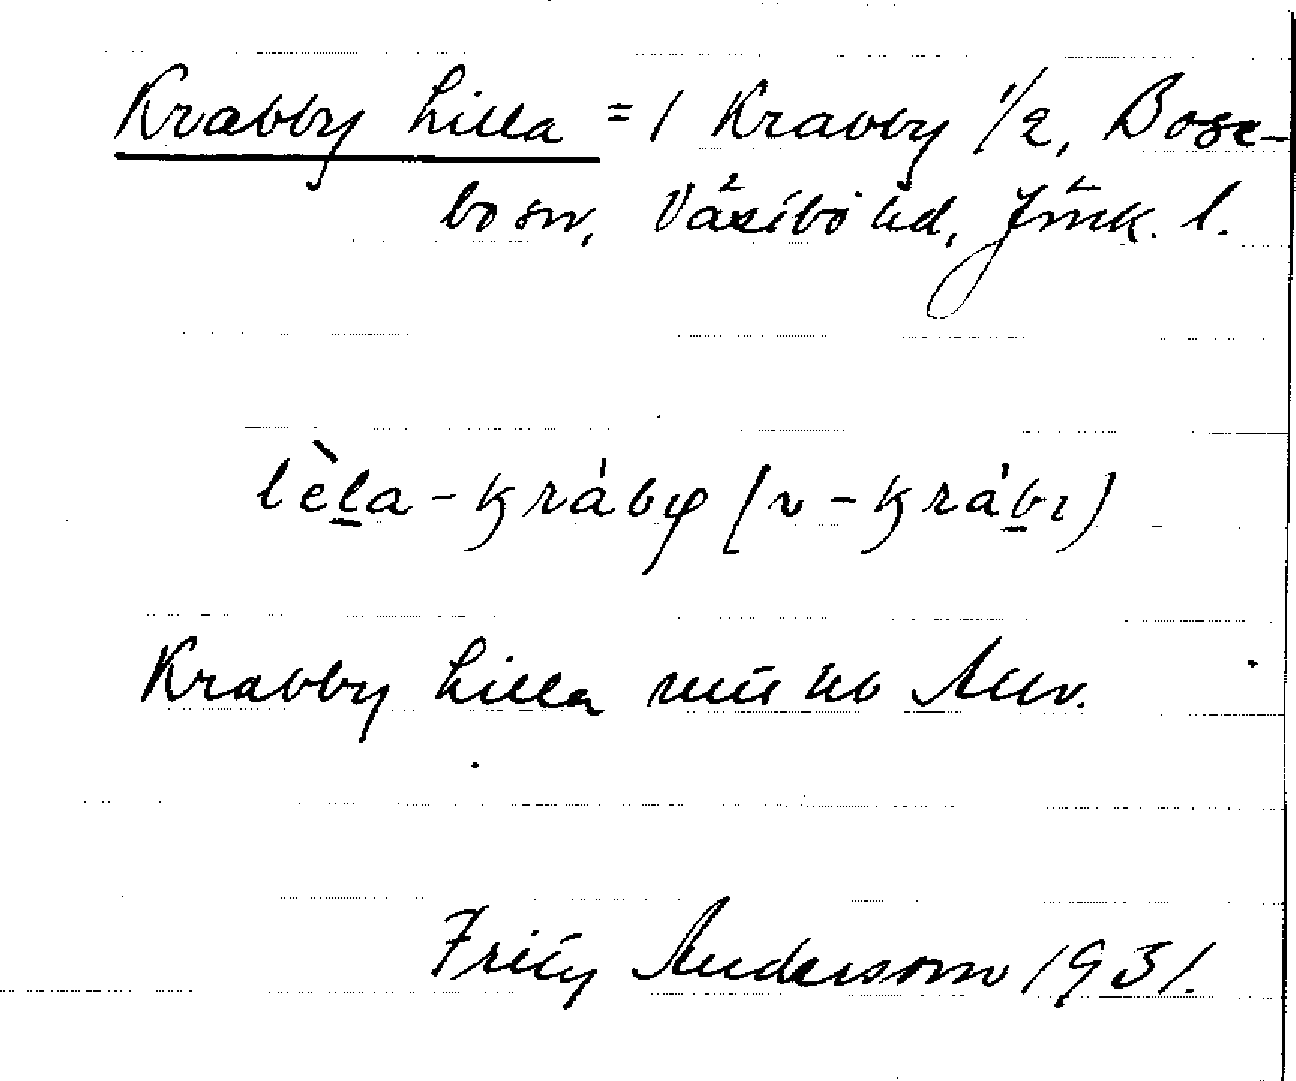 Krabby Lilla = 1 Krabby 1/2, Bose-
bo sn, Västbo hd, Jönk. l.
lèla - kráby (v - krábı)
Krabby Lilla
Fritz Anderson 1931.